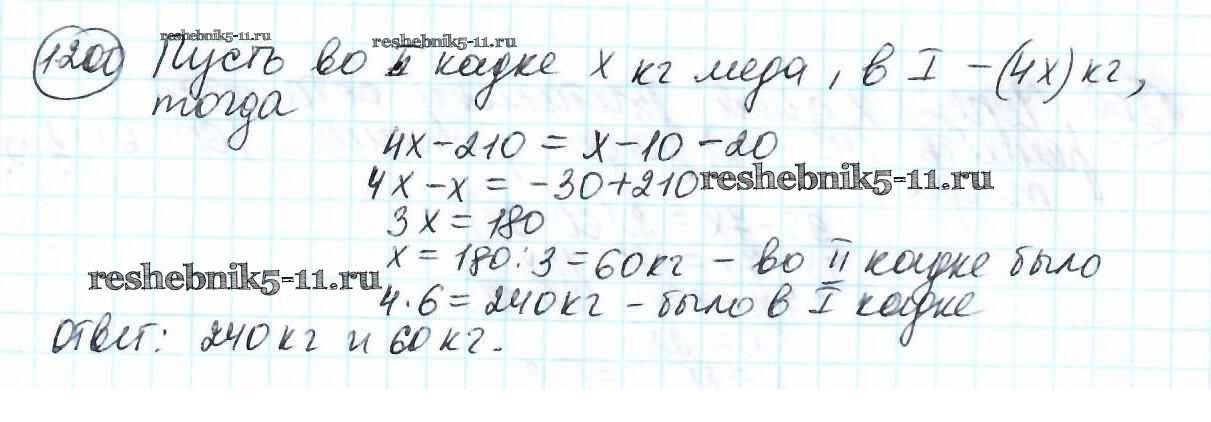 reshebnik5-11.ru
reshebnik5-11.ru
1200 Пусть во II кадке x кг меда, в I – (4x) кг,
тогда
4x – 210 = x – 10 – 20
4x – x = – 30 + 210
reshebnik5-11.ru
3x = 180
x = 180 : 3 = 60 кг – во II кадке было
reshebnik5-11.ru
4 · 6 = 240 кг – было в I кадке
ответ: 240 кг и 60 кг.